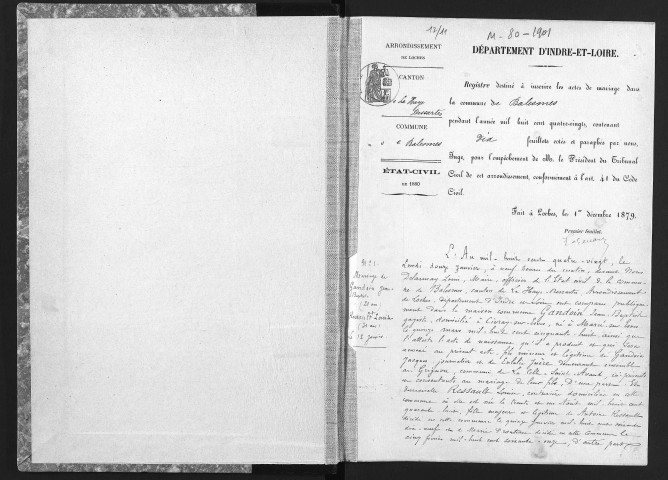 17/11
M - 80 - 1901
ARRONDISSEMENT
DE LOCHES
CANTON
de La Haye
Descartes
COMMUNE
de Balesmes
ÉTAT-CIVIL
DE 1880
DÉPARTEMENT D'INDRE-ET-LOIRE.
Registre destiné à inscrire les actes de mariage dans
la commune de Balesmes
pendant l'année mil huit cent quatre-vingts, contenant
Dix feuillets cotés et paraphés par nous,
Juge, pour l'empêchement de M. le Président du Tribunal
Civil de cet arrondissement, conformément à l'art. 41 du Code
Civil.
Fait à Loches, le 1er décembre 1879.
Premier feuillet.
N° 1.
Mariage de
Gandoin Jean
Baptiste
et
Ressault Louise
Le 12 Janvier
L'An mil huit cent quatre-vingt, le
Lundi douze janvier, à neuf heures du matin, devant Nous
Delaunay Louis, Maire, officier de l'Etat civil de la commu-
ne de Balesmes, canton de La Haye-Descartes, Arrondissement
de Loches, département d'Indre et Loire, ont comparu publique-
ment dans la maison commune Gandoin Jean-Baptiste
domicilié à Civray-sur-, né à
le quinze mars mil huit cent cinquante-huit, ainsi que
l'atteste l'acte de naissance qu'il a produit et qui sera
annexé au présent acte, fils mineur et légitime de Gandoin
Jacques journalier et de demeurant ensemble
au commune de La Celle-Saint-Avant, ici présents
et consentants au mariage de leur fils, D'une part. Et
demoiselle Ressault Louise, couturière domiciliée en cette
commune où elle est née le trente et un Août mil huit cent
quarante, fille majeure et légitime de Ressault
décédé en cette commune le quinze janvier mil huit cent soixante
dix-neuf et de Marie décédée en cette commune le
cinq février mil huit cent soixante-onze, D'autre part